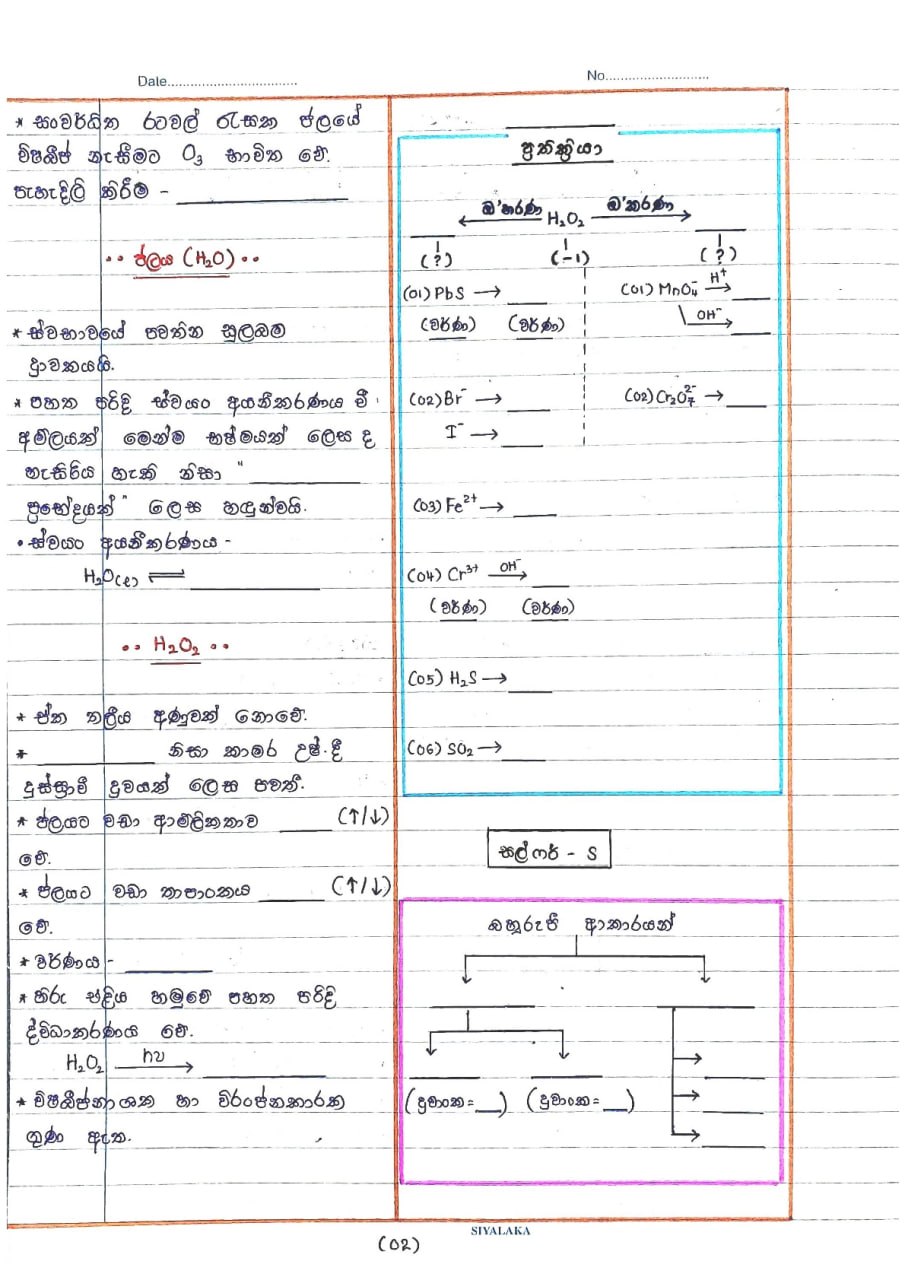 Date................................
No..........................
* සංවර්ධිත රටවල් රැසක ජලයේ
විෂබීජ නැසීමට O₃ භාවිත වේ.
පැහැදිලි කිරීම - ____________
•• ජලය (H₂O) ••
* ස්වභාවයේ පවතින සුලබම
ද්‍රාවකයයි.
* පහත පරිදි ස්වයං අයනීකරණය වී
අම්ලයක් මෙන්ම භෂ්මයක් ලෙස ද
හැසිරිය හැකි නිසා " ________
ප්‍රභේදයක් " ලෙස හඳුන්වයි.
• ස්වයං අයනීකරණය -
H₂O(ℓ) ⇌ ____________
•• H₂O₂ ••
* ඒක තලීය අණුවක් නොවේ.
* ________ නිසා කාමර උෂ්. දී
දුස්ස්‍රාවී ද්‍රවයක් ලෙස පවතී.
* ජලයට වඩා ආම්ලිකතාව ____ (↑/↓)
වේ.
* ජලයට වඩා තාපාංකය ____ (↑/↓)
වේ.
* වර්ණය - ______
* හිරු එළිය හමුවේ පහත පරිදි
ද්විධාකරණය වේ.
H₂O₂ hυ→ ________
* විෂබීජනාශක හා විරංජනකාරක
ගුණ ඇත.
ප්‍රතික්‍රියා
____ ←ඔ'හරණ H₂O₂ ඔ'කරණ→ ____
(?) (-1) (?)
(01) PbS → ____ (01) MnO₄⁻ H⁺→ ____
(වර්ණ) (වර්ණ) OH⁻→ ____
(02) Br⁻ → ____ (02) Cr₂O₇²⁻ → ____
I⁻ → ____
(03) Fe²⁺ → ____
(04) Cr³⁺ OH⁻→ ____
(වර්ණ) (වර්ණ)
(05) H₂S → ____
(06) SO₂ → ____
සල්ෆර් - S
බහුරූපී ආකාරයන්
(ද්‍රවාංක = __) (ද්‍රවාංක = __)
SIYALAKA
(02)